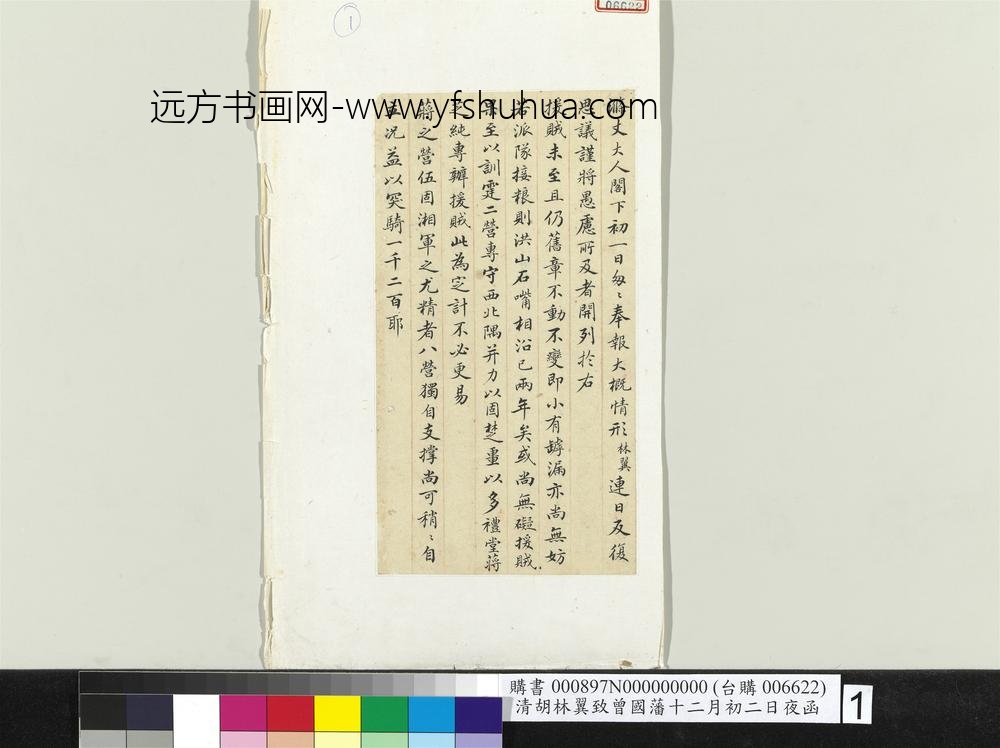 1
06622
远方书画网-www.yfshuhua.com
滌丈大人閣下初一日匆〻奉報大概情形林翼連日反復
思議謹將愚慮所及者開列於右
援賊未至且仍舊章不動不變即小有罅漏亦尚無妨
若派隊接粮則洪山石嘴相沿已兩年矣或尚無礙援賊
果至以訓霆二營專守西北隅并力以固楚畺以多禮堂蔣
之純專辦援賊此為定計不必更易
蔣之營伍固湘軍之尤精者八營獨自支撐尚可稍〻自
立况益以突騎一千二百耶
購書 000897N000000000 (台購 006622)
清胡林翼致曾國藩十二月初二日夜函
1